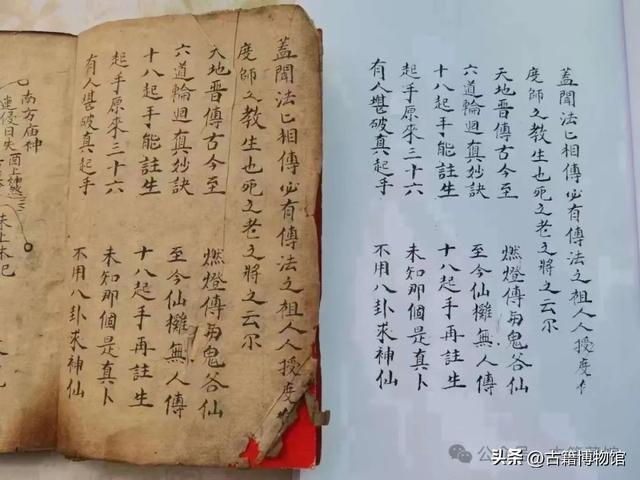 蓋聞法匕相傳必有傳法之祖人人授度
度師之教生也死之老之將之云尔
天地晋傳古今至 燃燈傳与鬼谷仙
六道輪迴真妙訣 至今仙欏無人傳
十八起手能註生 十八起手再註生
起手原來三十六 未知那個是真卜
有人堪破真起手 不用八卦求神仙
蓋聞法匕相傳必有傳法之祖人人授度
度師之教生也死之老之將之云尔
天地晋傳古今至 燃燈傳与鬼谷仙
六道輪迴真妙訣 至今仙欏無人傳
十八起手能註生 十八起手再註生
起手原來三十六 未知那個是真卜
有人堪破真起手 不用八卦求神仙
南方庙神
連侵日失
公众号
头条 @古籍博物馆